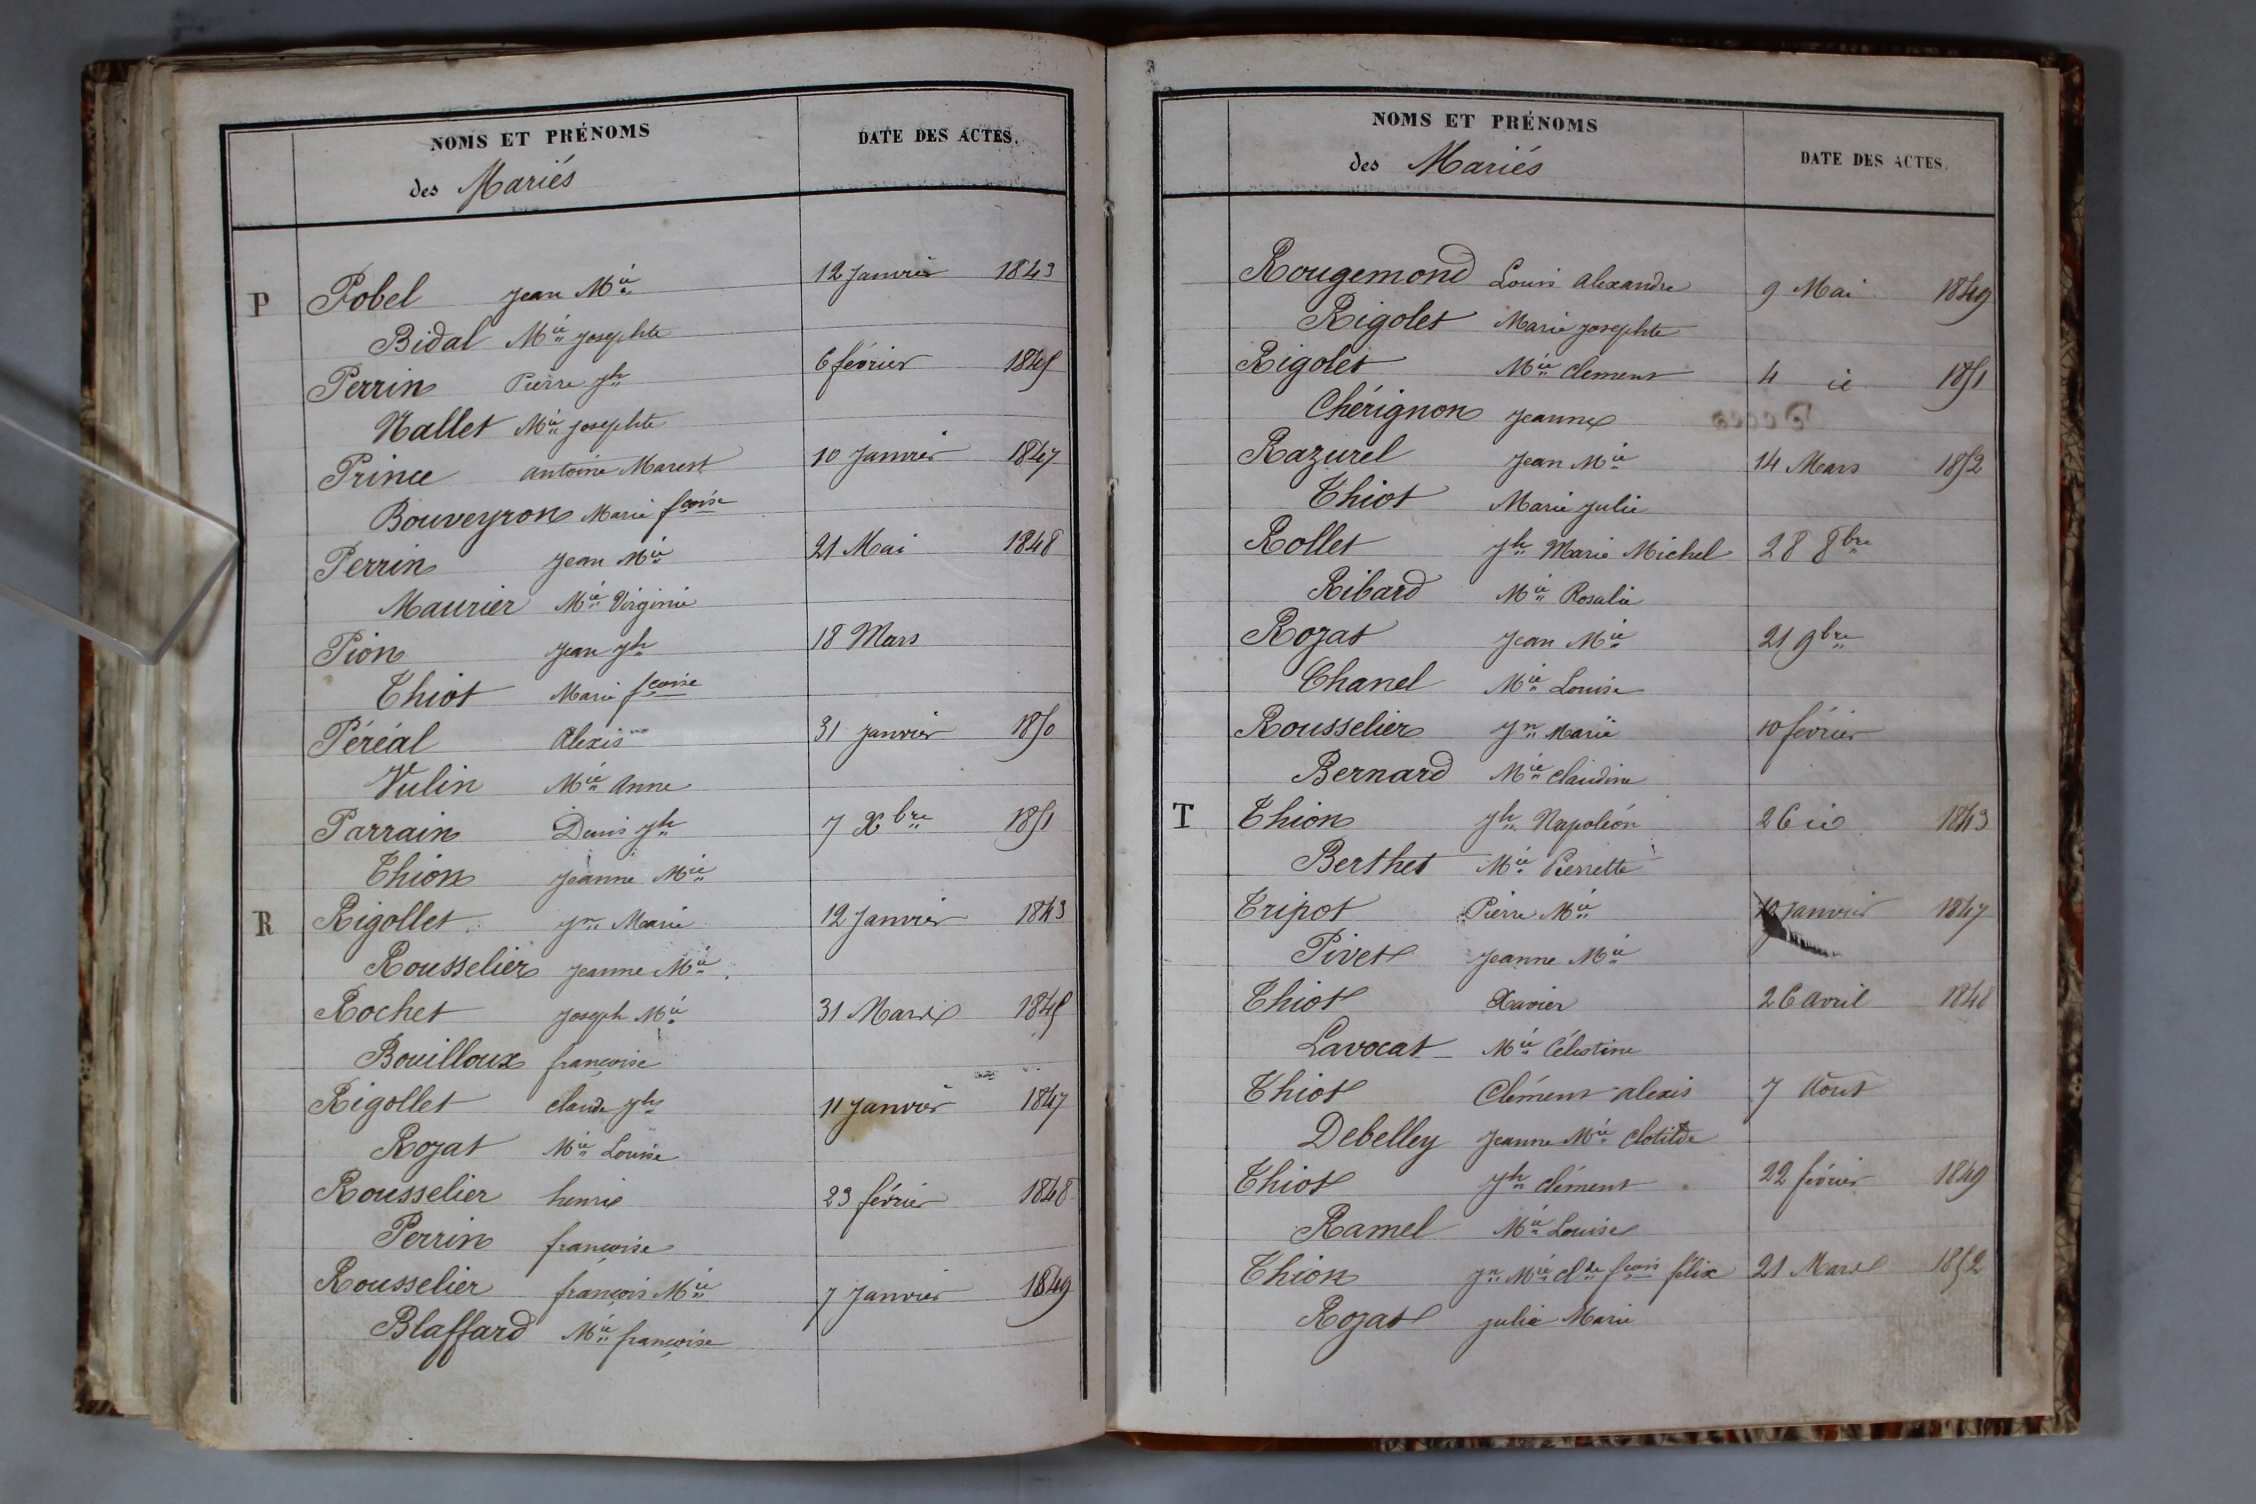 NOMS ET PRÉNOMS DATE DES ACTES.
des Mariés
P Pobel Jean Mie 12 Janvier 1843
Bidal Mie Josephte
Perrin Pierre Jh 6 février 1845
Nallet Mie Josephte
Prince antoine Marest 10 Janvier 1847
Bouveyron Marie fcoise
Perrin Jean Mie 21 Mai 1848
Maurier Mie Virginie
Pion Jean Jh 18 Mars
Thiot Marie fcoise
Péréal Alexis 31 Janvier 1850
Vulin Mie Anne
Parrain Denis Jh 7 Xbre 1851
Thion Jeanne Mie
R Rigollet Jn Marie 12 Janvier 1843
Rousselier Jeanne Mie
Rochet Joseph Mie 31 Mars 1845
Bouilloux françoise
Rigollet Claude Jh 11 Janvier 1847
Rozat Mie Louise
Rousselier henri 23 février 1848
Perrin françoise
Rousselier françois Mie 7 Janvier 1849
Blaffard Mie françoise
NOMS ET PRÉNOMS
des Mariés DATE DES ACTES.
Rougemond Louis Alexandre 9 Mai 1849
Rigolet Marie Josephte
Rigolet Mie Clément 4 id 1851
Chérignon Jeanne
Razurel Jean Mie 14 Mars 1852
Thiot Marie Julie
Rollet Jh Marie Michel 28 8bre
Ribard Mie Rosalie
Rozat Jean Mie 21 9bre
Chanel Mie Louise
Rousselier Jn Marie 10 février
Bernard Mie Claudine
T Thion Jh Napoléon 26 id 1843
Berthet Mie Pierrette
Tripot Pierre Mie Janvier 1847
Pivet Jeanne Mie
Thiot Xavier 26 Avril 1848
Lavocat Mie Célestine
Thiot Clément Alexis 7 Août
Debelley Jeanne Mie Clotilde
Thiot Jh Clément 22 février 1849
Ramel Mie Louise
Thion Jn Mie Clde fcois félix 21 Mars 1852
Rozat Julie Marie